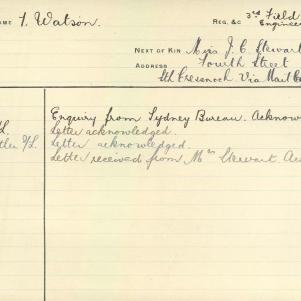 AME T. Watson. REG. &C 3rd Field
Engineer
NEXT OF KIN Mrs J. C. Stewart
ADDRESS Fourth Street
Sth Tresanoch Via Mail
Enquiry from Sydney Bureau. Acknow
/L. Letter acknowledged.
ther s/L. Letter acknowledged.
Letter received from Mrs Stewart Ac